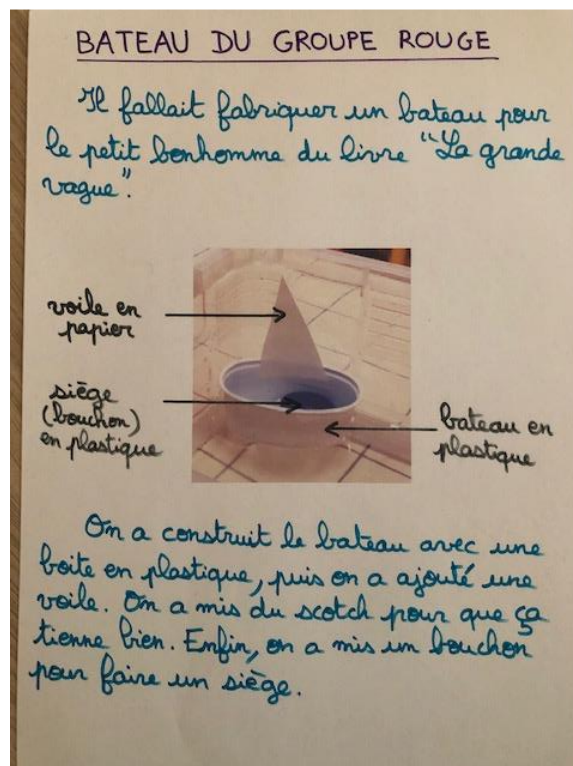 BATEAU DU GROUPE ROUGE
Il fallait fabriquer un bateau pour
le petit bonhomme du livre "La grande
vague".
voile en
papier
siège
(bouchon)
en plastique
bateau en
plastique
On a construit le bateau avec une
boite en plastique, puis on a ajouté une
voile. On a mis du scotch pour que ça
tienne bien. Enfin, on a mis un bouchon
pour faire un siège.